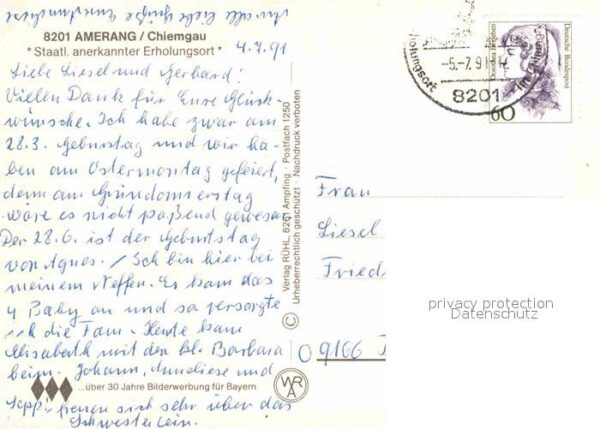 8201 AMERANG / Chiemgau
* Staatl. anerkannter Erholungsort *
4.7.91
Liebe Liesel und Gerhard!
Vielen Dank für Eure Glück-
wünsche. Ich habe zwar am
28.3. Geburtstag und wir ha-
ben am Ostermontag gefeiert,
denn am Gründonnerstag
wäre es nicht paßend gewesen
Der 28.6. ist der Geburtstag
von Agnes. / Ich bin hier bei
meinem Neffen. Es kam das
4 Baby an und so versorgte
ich die Fam. Heute kam
Elisabeth mit der kl. Barbara
heim. Johann, Anneliese und
Sepp freuen sich sehr über das
Schwesterlein.
...über 30 Jahre Bilderwerbung für Bayern
Verlag RÜHL, 8261 Ampfing · Postfach 1250
Urheberrechtlich geschützt · Nachdruck verboten
WRA
-5.-7.91
8201
Deutsche Bundespost
60
Frau
Liesel
Fried
privacy protection
Datenschutz
9166